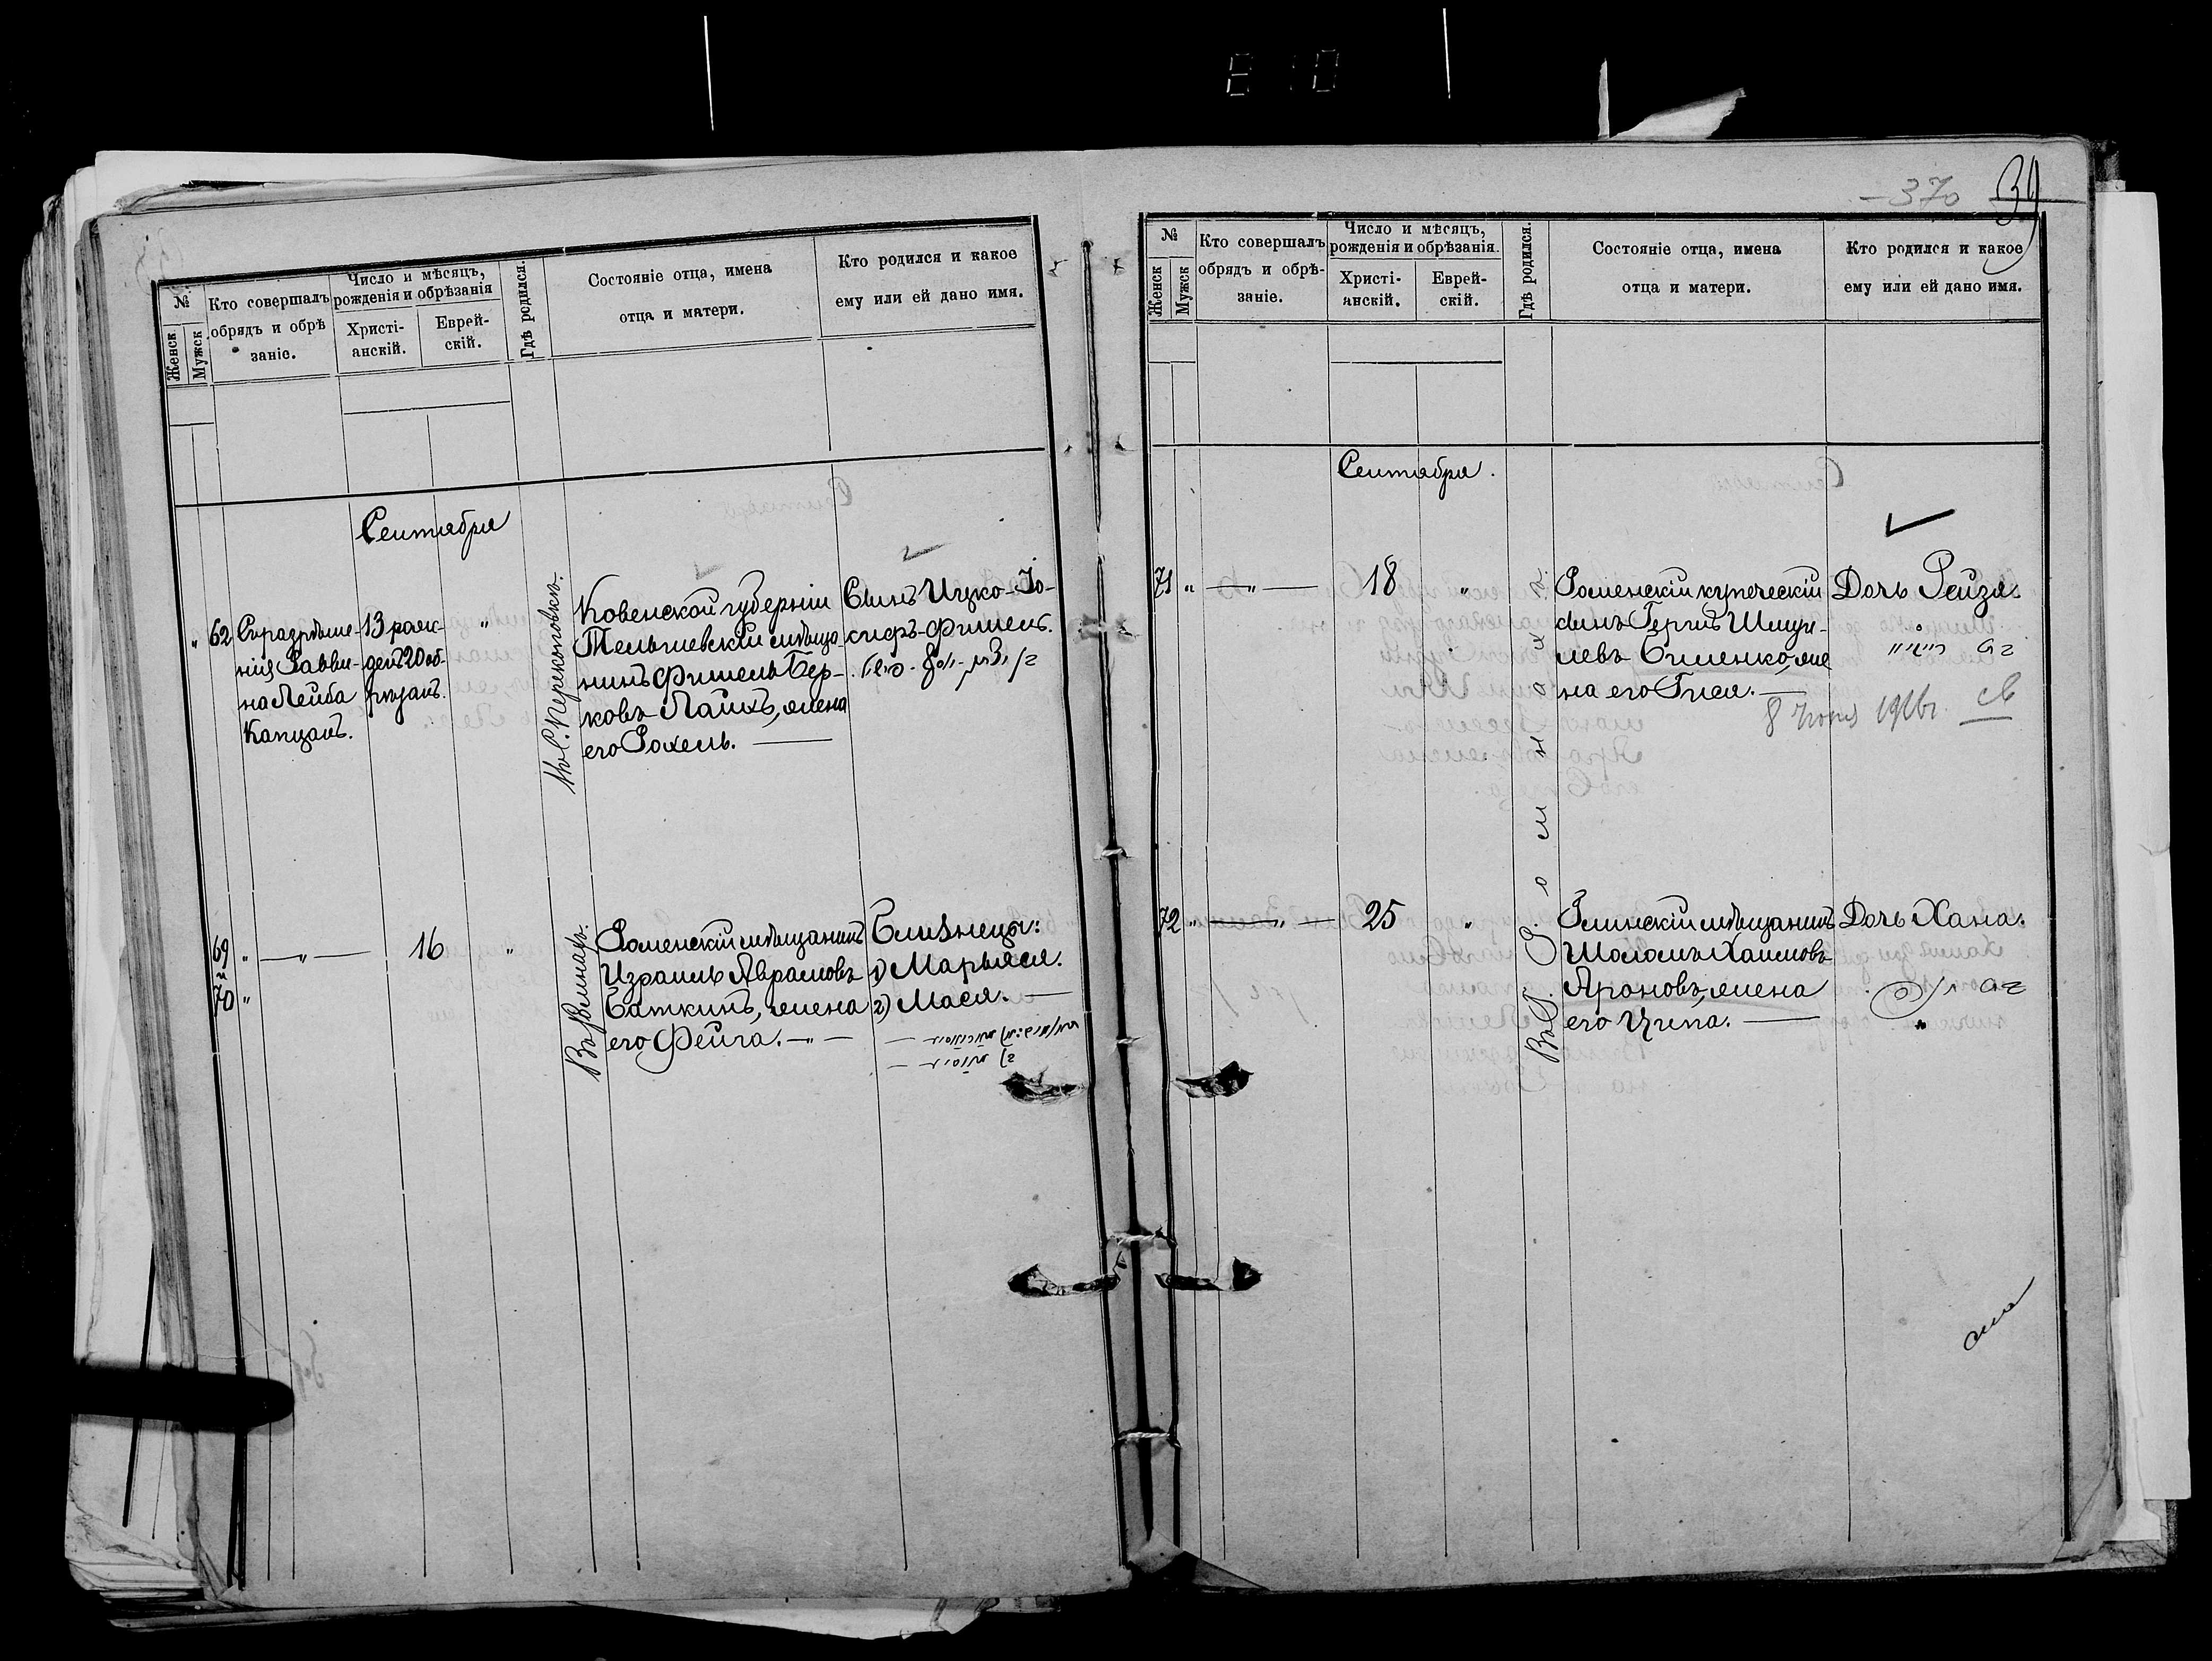 810
№
Женск
Мужск
Кто совершалъ
обрядъ и обрѣ
заніе.
Число и мѣсяцъ,
рожденія и обрѣзанія
Христі-
анскій.
Еврей-
скій.
Гдѣ родился.
Состояніе отца, имена
отца и матери.
Кто родился и какое
ему или ей дано имя.
Сентября
" 62
Съ разрѣше-
нія Равви-
на Лейба
Капцанъ.
13 рож-
денъ 20 об-
рѣзанъ.
"
Въ С. Перекоповкѣ.
Ковенской губерніи
Тельшевскій мѣща-
нинъ Фишель Бер-
ковъ Лайхъ, жена
его Рохель. —
Сынъ Ицко-Іо-
сифъ-Фишель.
69 "
и
70 "
— " —
16
"
Роменскій мѣщанинъ
Израиль Аврамовъ
Баткинъ, жена
его Фейга. — " —
Близнецы:
1) Марьяся.
2) Мася. —
-370
39
№
Женск
Мужск
Кто совершалъ
обрядъ и обрѣ-
заніе.
Число и мѣсяцъ,
рожденія и обрѣзанія.
Христі-
анскій.
Еврей-
скій.
Гдѣ родился.
Состояніе отца, имена
отца и матери.
Кто родился и какое
ему или ей дано имя.
Сентября.
71 "
— " —
18
"
Въ Г. Ромнахъ.
Роменскій купеческій
сынъ Герцъ Шмуи-
левъ Биленко, же
на его Гися. —
Дочь Рейзя.
בת רייזי
8 Іюня 1916г.
72 "
— " —
25
"
Глинскій мѣщанинъ
Шоломъ Хаимовъ
Ароновъ, жена
его Ципа. —
Дочь Хана.
בת חנה.